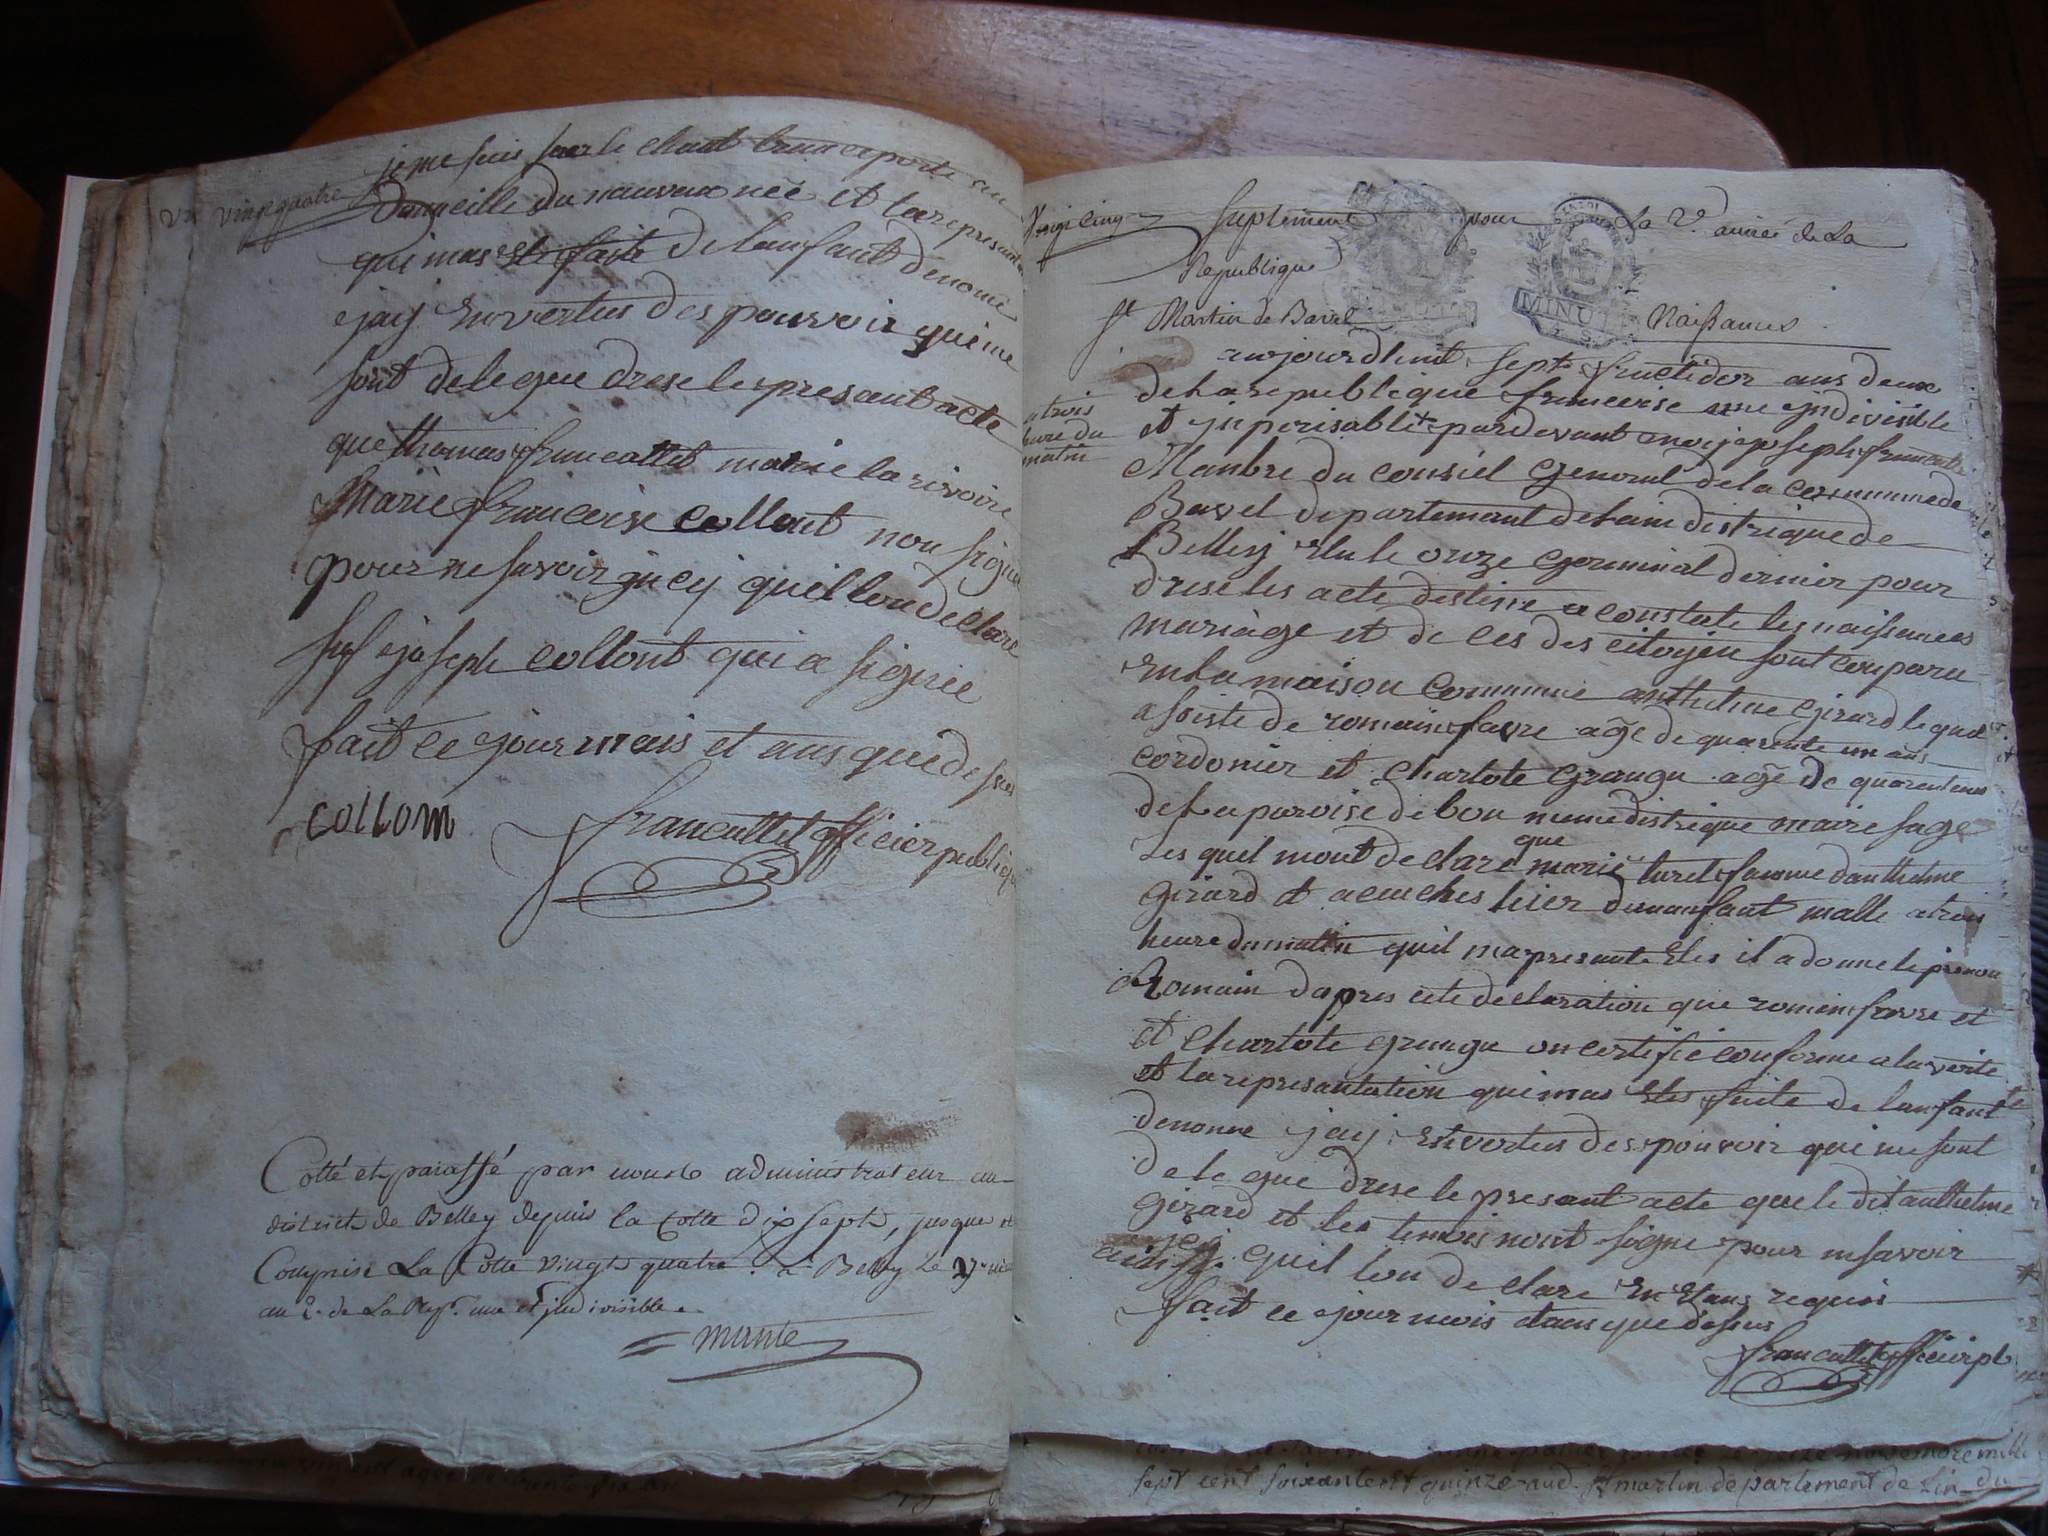 vingt quatre
je me suis sur le chant transeporte au
Domeille du nauvau née et la represant
qui mas este faite de lanfant denomé
jay en vertus des pouvoir qui me
sont delegue drese le presant acte
que thomas francattet marie la rivoire
Marie francoise collont non signe
pour ne savoir jncy quil lon declare
sof joseph collont qui a signée
fait ce jour mois et ans que desus
COLLOM
francattet officier publique
Cotté et paraffé par nous administrateur au
district de Belley depuis la cotte dix sept, jusque et
Comprise La Cotte vingt quatre. à Belley le
au 2e. de La Rep. une et jndivisible.
munte
Vingt cinq suplement pour la 2e. année de La
Republique
MINUTE
St Martin de Bavel Naissances
aujourdhuit sept fructidor ans deux
de la republique francoise une jndivisible
et jnperisable pardevant moi joseph francattet
a trois
heure du
matin
Manbre du consiel general de la commune de
Bavel departemant de lain distrique de
Belley elu le onze germinal dernier pour
drese les acte destine a constate les naissances
mariage et deces des citoyen sont conparu
en la maison commune anthelme girard le quel
asciste de romain favre age de quarente un ans
cordonier et charlote grangu age de quarente
de la paroise de bon distrique maire sage
Les quel mont declare que marie turel famme danthelme
girard et acouches hier dunanfant malle a trois
heure du mattin quil ma presante et il a donne le prenom
Romain dapres cete declaration que romin favre et
et charlote grangu on certifie conforme a la verite
et la represantation qui mas etes faite de lanfant
denonne jay en vertus des pouvoir qui me sont
delegue drese le presant acte que le dit anthelme
girard et les temois nont signe pour nsavoir
quil lon declare en etans requis
fait ce jour mois et ans que desus
francattet officier pb
sept cent soixante et quinze St martin departement de Lin